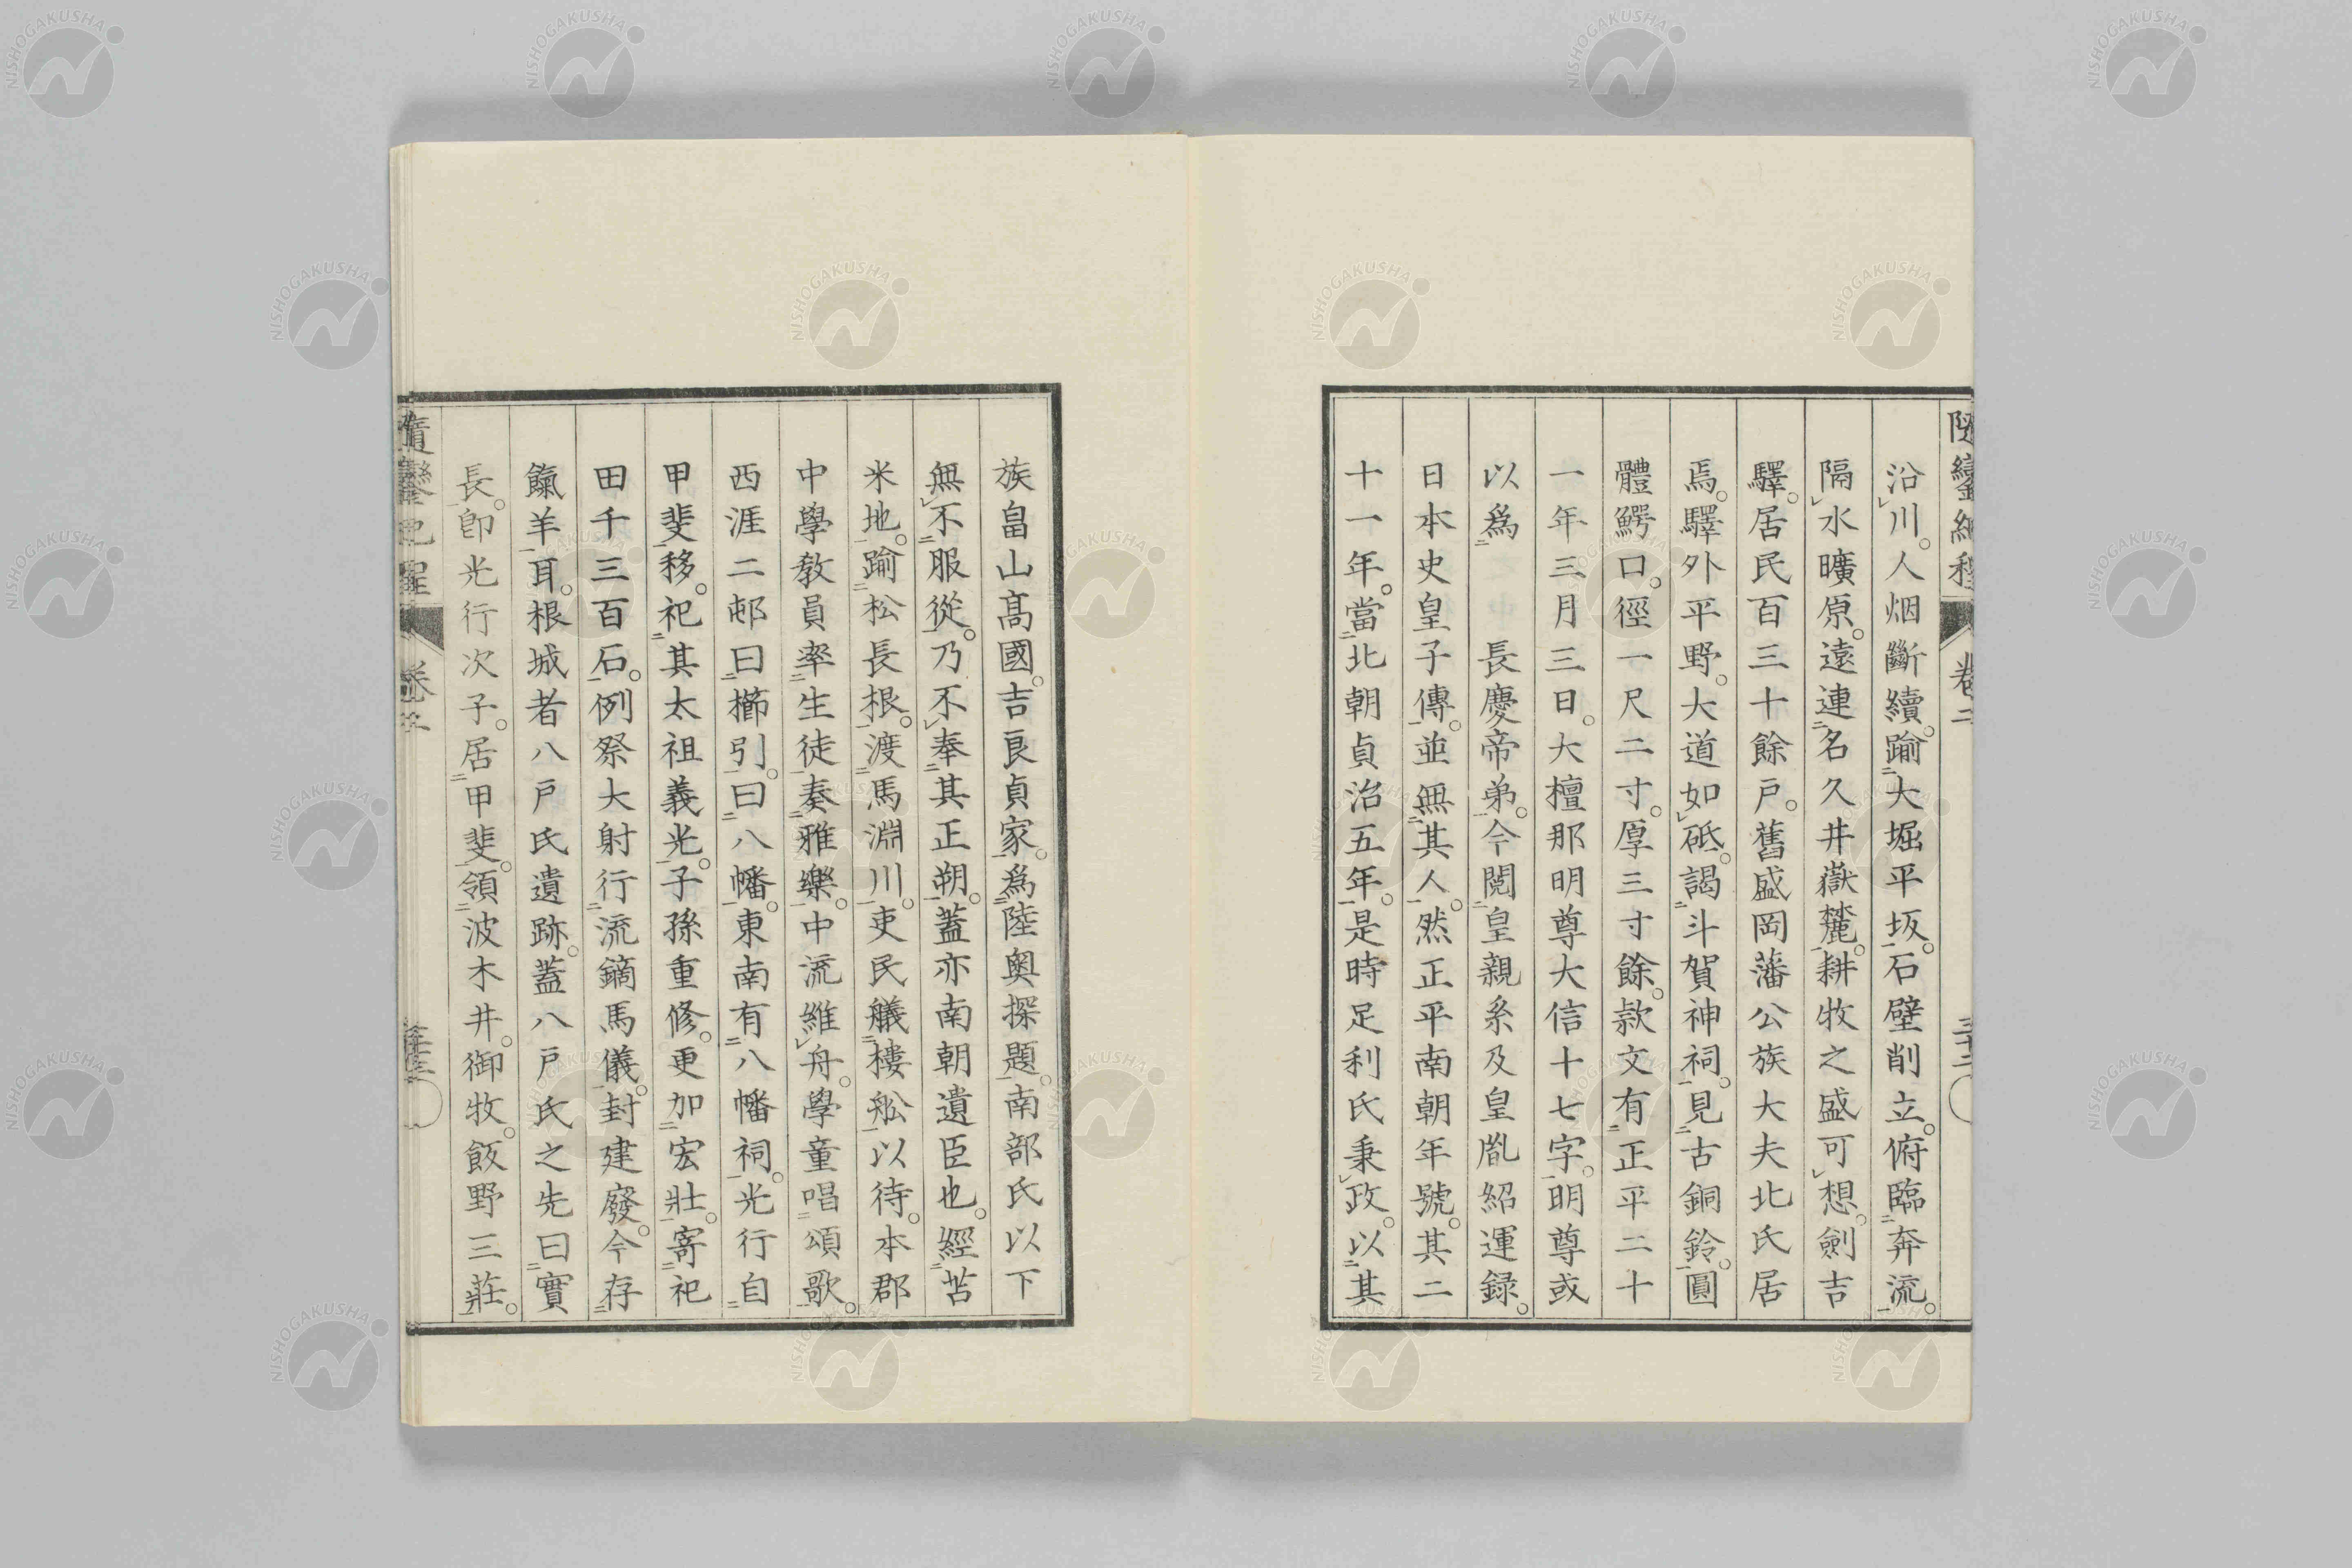 沿川。人烟斷續。踰大堀平坂。石壁削立。俯臨奔流。
隔水曠原。遠連名久井嶽麓。耕牧之盛可想。劍吉
驛。居民百三十餘戸。舊盛岡藩公族大夫北氏居
焉。驛外平野。大道如砥。謁斗賀神祠。見古銅鈴。圓
體鰐口。徑一尺二寸。厚三寸餘。款文有正平二十
一年三月三日。大檀那明尊大信十七字。明尊或
以爲　　長慶帝弟。今閲皇親系及皇胤紹運録。
日本史皇子傳。並無其人。然正平南朝年號。其二
十一年。當北朝貞治五年。是時足利氏秉政。以其
族畠山髙國。吉良貞家。爲陸奥探題。南部氏以下
無不服從。乃不奉其正朔。蓋亦南朝遺臣也。經苫
米地。踰松長根。渡馬淵川。吏民艤樓舩以待。本郡
中學教員率生徒奏雅樂。中流維舟。學童唱頌歌。
西涯二邨曰櫛引。曰八幡。東南有八幡祠。光行自
甲斐移。祀其太祖義光。子孫重修。更加宏壯。寄祀
田千三百石。例祭大射行流鏑馬儀。封建廢。今存
餼羊耳。根城者八戸氏遺跡。蓋八戸氏之先曰實
長。卽光行次子。居甲斐。領波木井。御牧。飯野三莊。
NISHOGAKUSHA